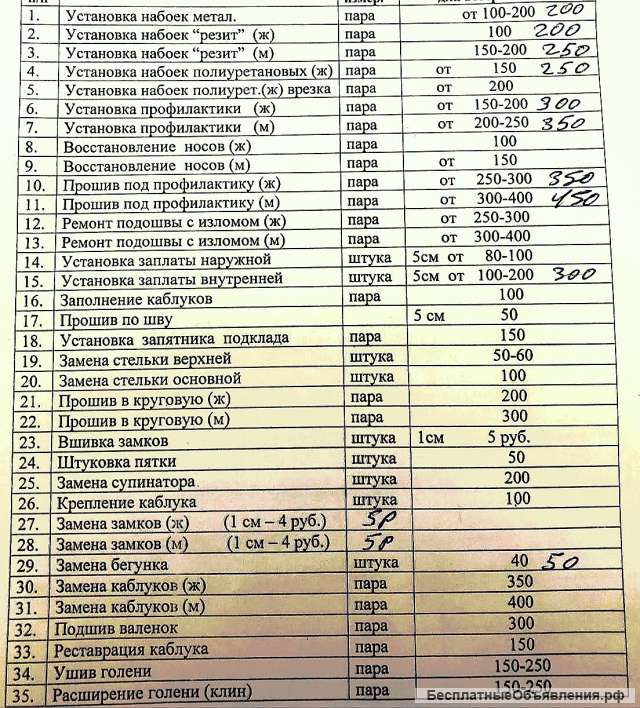 1. Установка набоек метал. пара от 100-200 200
2. Установка набоек “резит” (ж) пара 100 200
3. Установка набоек “резит” (м) пара 150-200 250
4. Установка набоек полиуретановых (ж) пара от 150 250
5. Установка набоек полиурет.(ж) врезка пара от 200
6. Установка профилактики (ж) пара от 150-200 300
7. Установка профилактики (м) пара от 200-250 350
8. Восстановление носов (ж) пара 100
9. Восстановление носов (м) пара от 150
10. Прошив под профилактику (ж) пара от 250-300 350
11. Прошив под профилактику (м) пара от 300-400 450
12. Ремонт подошвы с изломом (ж) пара от 250-300
13. Ремонт подошвы с изломом (м) пара от 300-400
14. Установка заплаты наружной штука 5см от 80-100
15. Установка заплаты внутренней штука 5см от 100-200 300
16. Заполнение каблуков пара 100
17. Прошив по шву 5 см 50
18. Установка запятника подклада пара 150
19. Замена стельки верхней штука 50-60
20. Замена стельки основной штука 100
21. Прошив в круговую (ж) пара 200
22. Прошив в круговую (м) пара 300
23. Вшивка замков штука 1см 5 руб.
24. Штуковка пятки штука 50
25. Замена супинатора штука 200
26. Крепление каблука штука 100
27. Замена замков (ж) (1 см – 4 руб.) 5р
28. Замена замков (м) (1 см – 4 руб.) 5р
29. Замена бегунка штука 40 50
30. Замена каблуков (ж) пара 350
31. Замена каблуков (м) пара 400
32. Подшив валенок пара 300
33. Реставрация каблука пара 150
34. Ушив голени пара 150-250
35. Расширение голени (клин) пара 150-250
БесплатныеОбъявления.рф